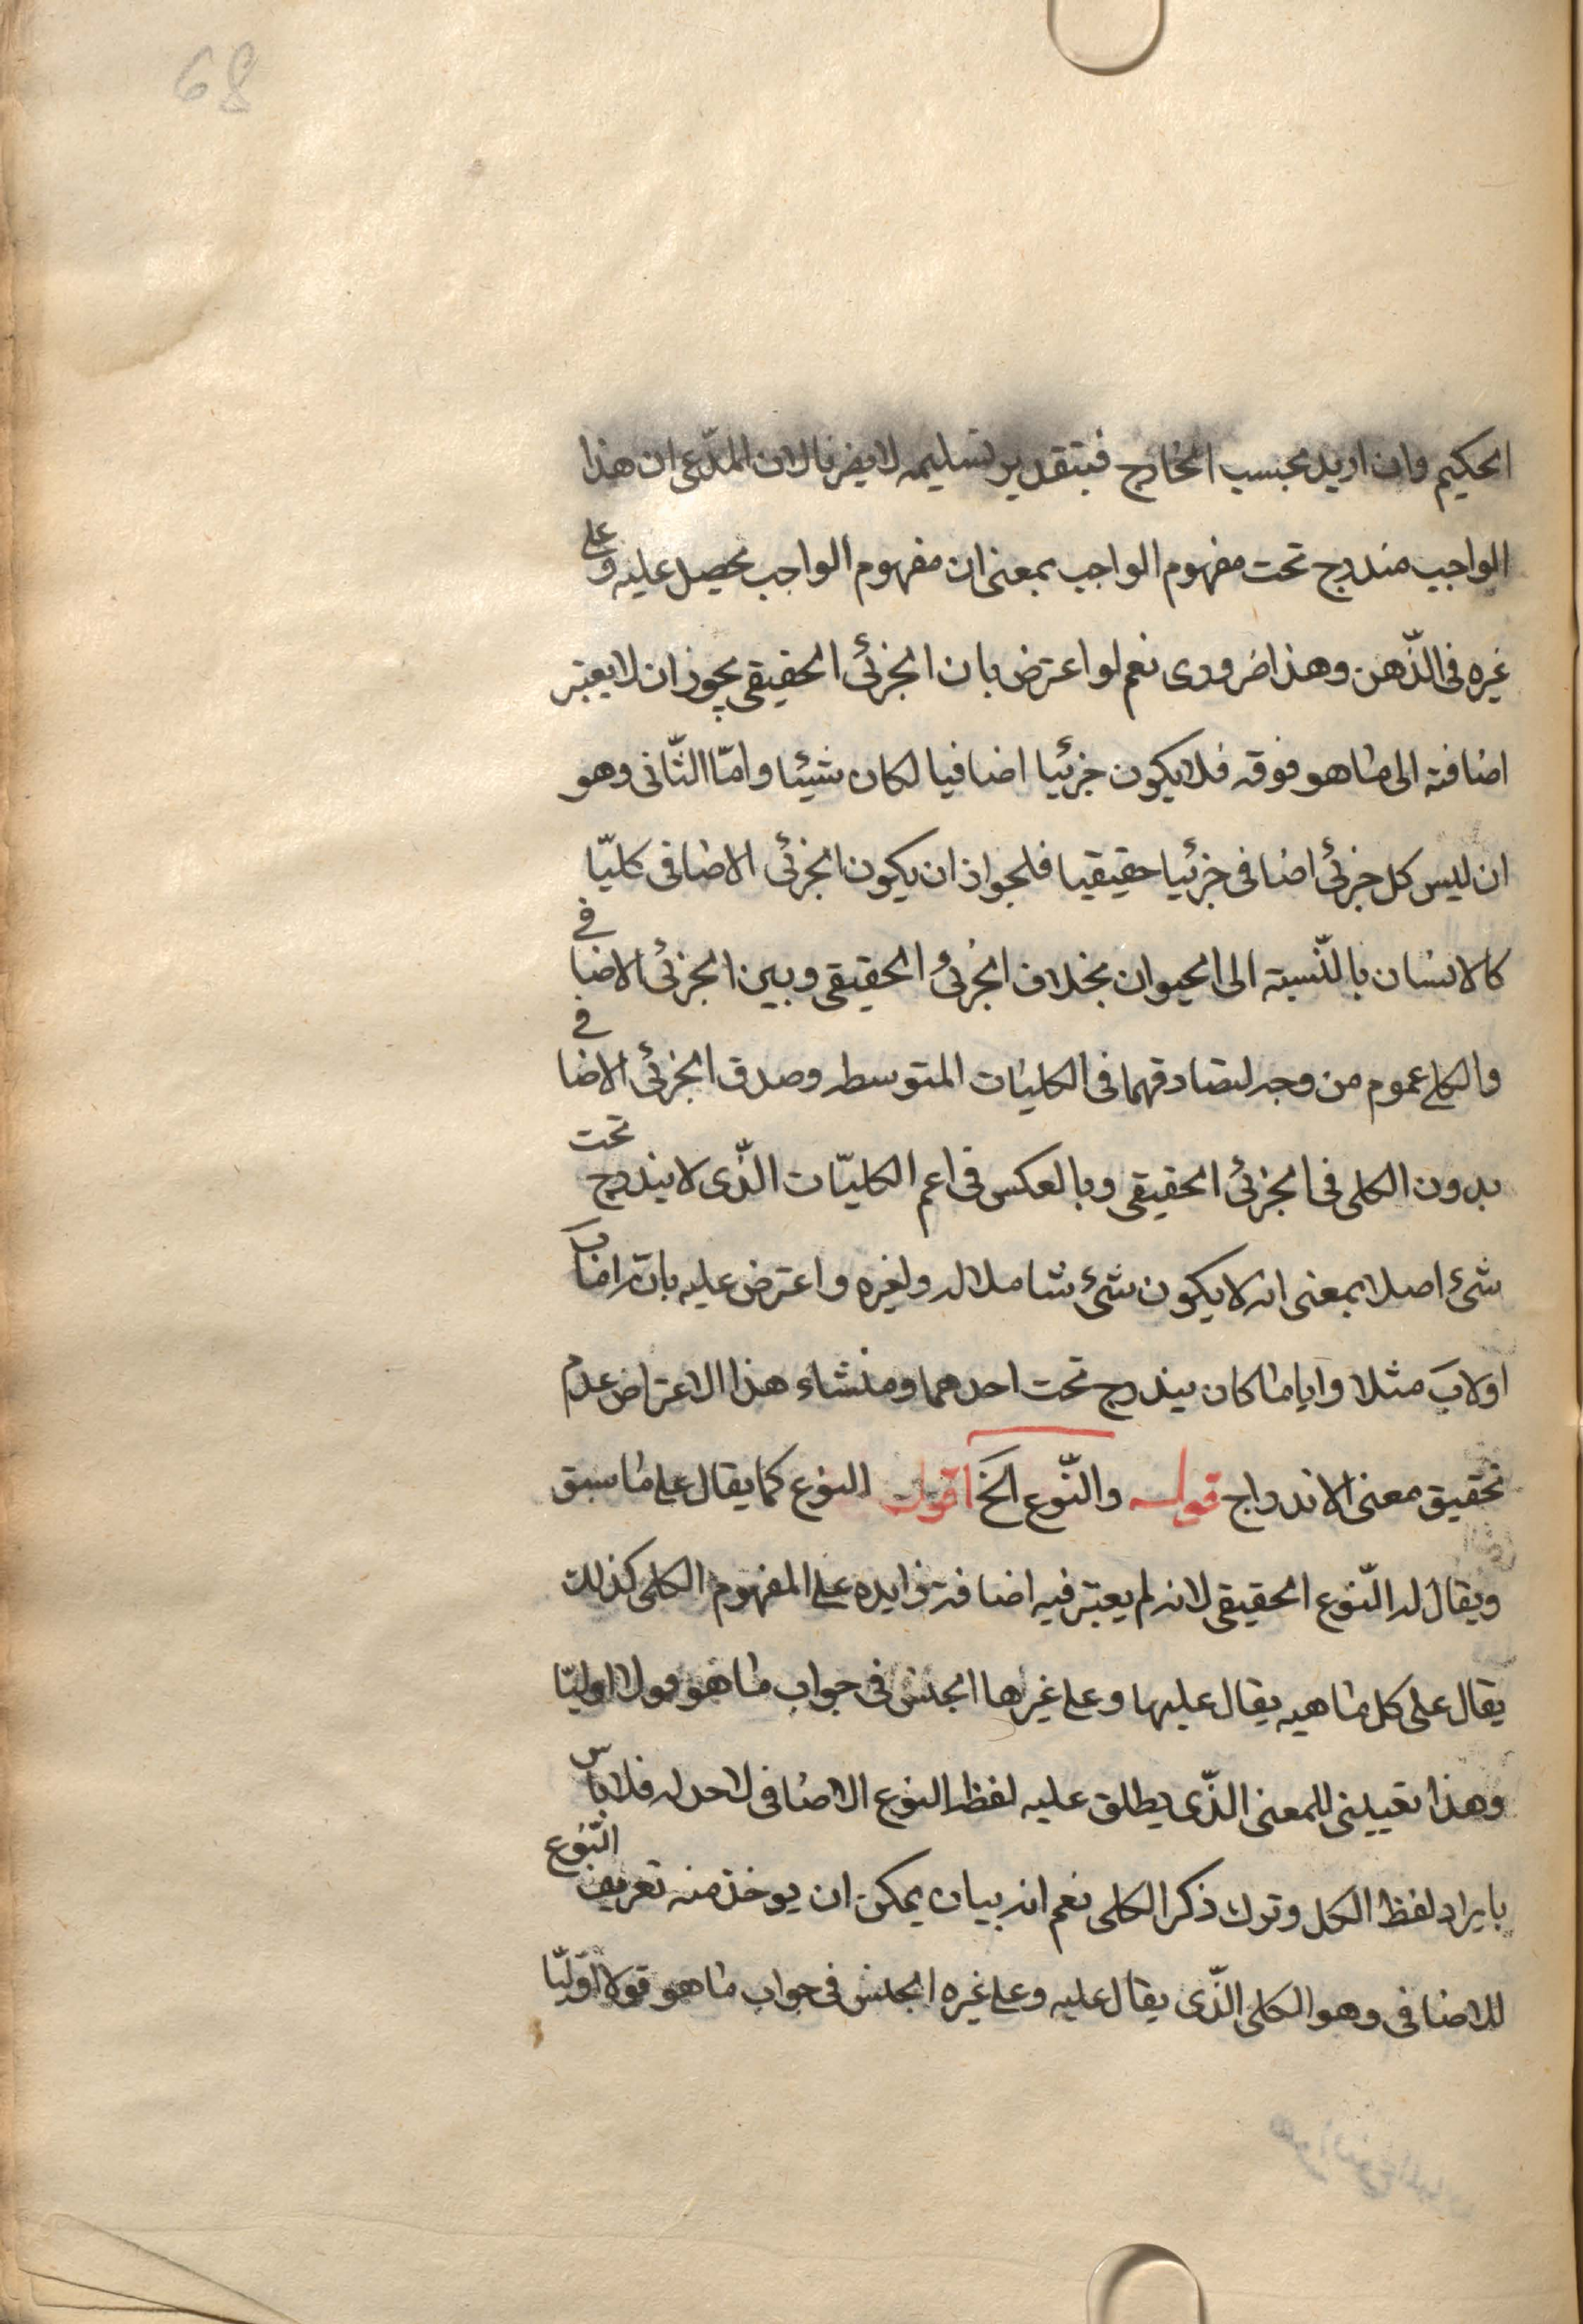 68
الحكيم وان اريد بحسب الخارج فبتقدير تسليمه لا يضرنا لان المدّعى ان هذا
الواجب مندرج تحت مفهوم الواجب بمعنى ان مفهوم الواجب يحصل عليه وعلى
غيره فى الذّهن وهذا ضرورى نعم لو اعترض بان الجزئى الحقيقى يجوز ان لا يعتبر
اضافته الى ما هو فوقه فلا يكون جزئيا اضافيا لكان شيئا وامّا الثّانى وهو
ان ليس كل جزئى اضافى جزئيا حقيقيا فلجواز ان يكون الجزئى الاضافى كليّا
كالانسان بالنّسبته الى الحيوان بخلاف الجزئى الحقيقى وبين الجزئى الاضافى
والكلى عموم من وجه لتصادقهما فى الكليات المتوسطه وصدق الجزئى الاضافى
بدون الكلى فى الجزئى الحقيقى وبالعكس فى اعم الكليّات الذّى لا يندرج تحت
شئ اصلا بمعنى انه لا يكون شئ شاملا له ولغيره واعترض عليه بانّه اما ب
اولاب مثلا وايا ما كان يندرج تحت احدهما ومنشاء هذا الاعتراض عدم
تحقيق معنى الاندراج قوله والنّوع الخ اقول النوع كما يقال على ما سبق
ويقال له النّوع الحقيقى لانه لم يعتبر فيه اضافة زايده على المفهوم الكلى كذلك
يقال على كل ماهيه يقال عليها وعلى غيرها الجنس فى جواب ما هو قولا اوليّا
وهذا تعيينى للمعنى الذّى يطلق عليه لفظ النوع الاضافى لا حد له فلا باس
بايراد لفظ الكل وترك ذكر الكلى نعم انه بيان يمكن ان يوخذ منه تعريف النّوع
للاضافى وهو الكلى الذّى يقال عليه وعلى غيره الجنس فى جواب ما هو قولا اوّليّا